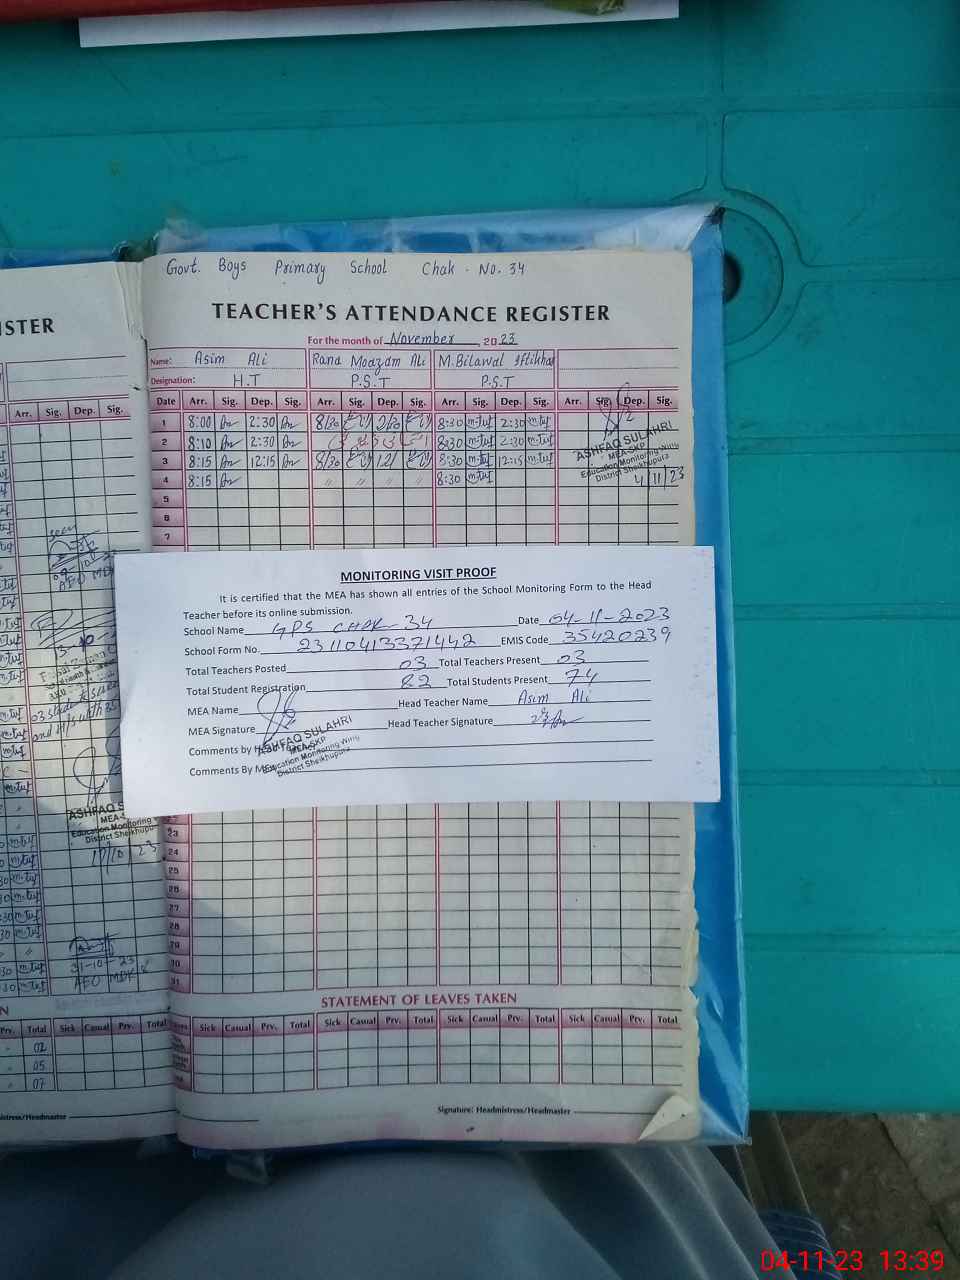 Govt. Boys Primary School Chak No. 34
ISTER
TEACHER'S ATTENDANCE REGISTER
For the month of November, 2023
Name: Asim Ali Rana Moazam Ali M.Bilawal Iftikhar
Designation: H.T P.S.T P.S.T
Arr. Sig. Dep. Sig.
Date Arr. Sig. Dep. Sig. Arr. Sig. Dep. Sig. Arr. Sig. Dep. Sig. Arr. Sig. Dep. Sig.
1 8:00 2:30 8/30 2/30 8:30 2:30
2 8:10 2:30 8:30 2:30
3 8:15 12:15 8/30 8:30 12:15
4 8:15 " " " " 8:30
ASHFAQ SULAHRI
MEA-SKP
Education Monitoring Wing
District Sheikhupura
4/11/23
5
6
7
seen
AEO
MONITORING VISIT PROOF
It is certified that the MEA has shown all entries of the School Monitoring Form to the Head
Teacher before its online submission.
School Name GPS CHAK 34 Date 04-11-2023
School Form No. 23110413371442 EMIS Code 35420239
Total Teachers Posted 03 Total Teachers Present 03
Total Student Registration 82 Total Students Present 74
MEA Name Head Teacher Name Asim Ali
MEA Signature Head Teacher Signature
Comments by
Comments By MEA
ASHFAQ SULAHRI
MEA-SKP
Education Monitoring Wing
District Sheikhupura
ASHFAQ S
MEA-
Education Monitoring Wi
District Sheikhupu
17/10/23
23
24
25
26
27
28
29
30
31
31-10-23
AEO MDK
STATEMENT OF LEAVES TAKEN
Prv. Total Sick Casual Prv. Total
Sick Casual Prv. Total Sick Casual Prv. Total Sick Casual Prv. Total Sick Casual Prv. Total
02
05
07
mistress/Headmaster
Signature: Headmistress/Headmaster
04-11-23 13:39